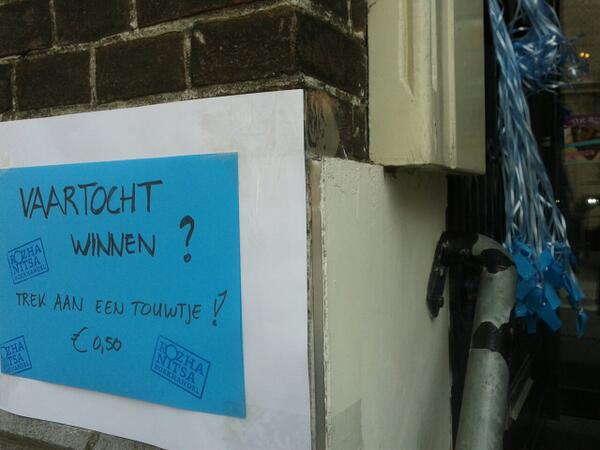 VAARTOCHT
WINNEN ?
TREK AAN EEN TOUWTJE !
€ 0,50
ROZHA
NITSA
BOEKHANDEL
ROZHA
NITSA
BOEKHANDEL